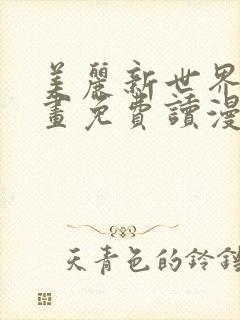 美麗新世界
畫免費讀漫
天青色的鈴鐺